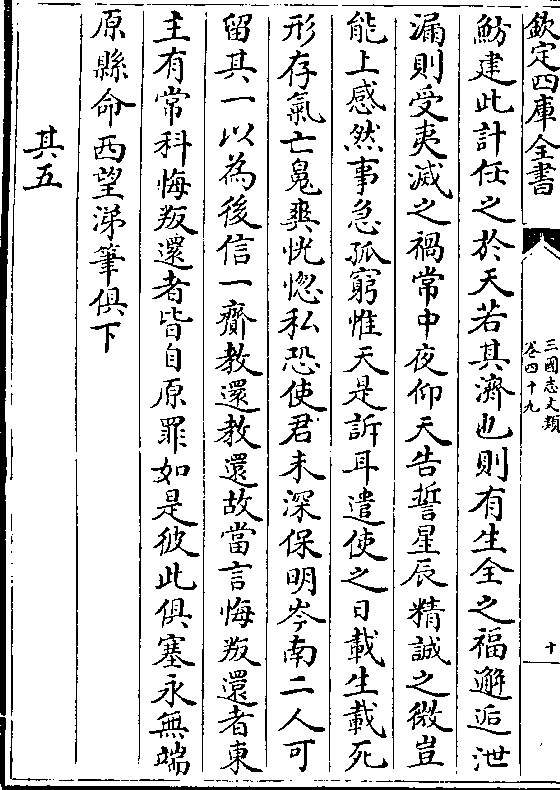 欽定四庫全書
三國志文類
卷四十九
十
魴建此計任之於天若其濟也則有生全之福邂逅泄
漏則受夷滅之禍常中夜仰天告誓星辰精誠之微豈
能上感然事急孤窮惟天是訴耳遣使之日載生載死
形存氣亡鬼爽恍惚私恐使君未深保明岑南二人可
留其一以為後信一齎教還教還故當言悔叛還者東
主有常科悔叛還者皆自原罪如是彼此俱塞永無端
原縣命西望涕筆俱下
其五